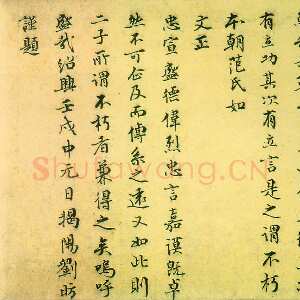 有立功其次有立言是之謂不朽
本朝范氏如
文正
忠宣盛德偉烈忠言嘉謨既卓
然不可企及而傳系之遠又如此則
二子所謂不朽者兼得之矣嗚呼
盛哉紹興壬戌中元日揭陽劉昉
謹題
Shufawang.CN